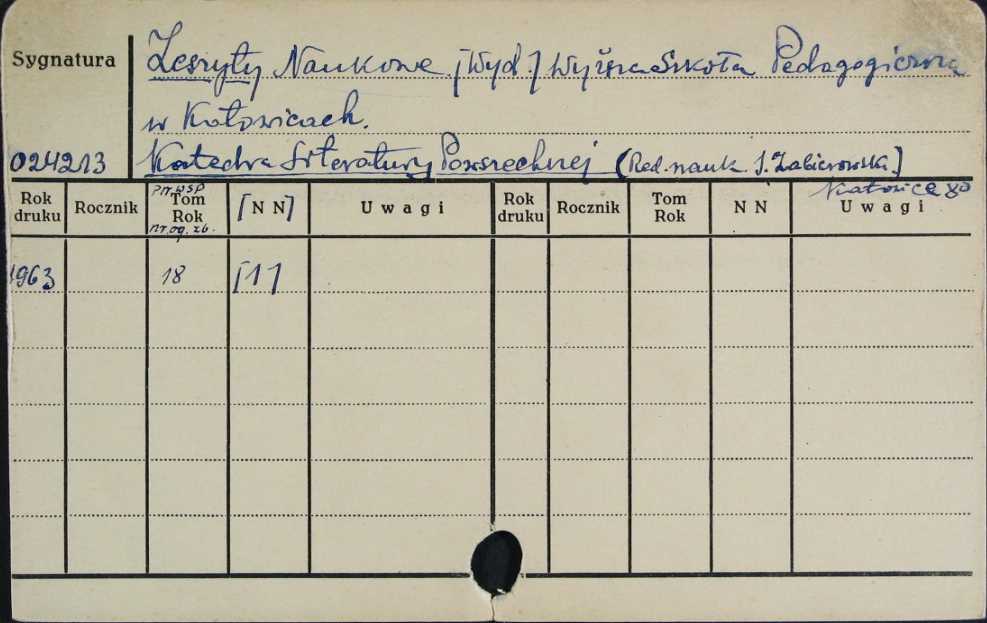 Sygnatura
Zeszyty Naukowe. [Wyd.] Wyższa Szkoła Pedagogiczna
w Katowicach.
024213
Katedra Literatury Powszechnej (Red. nauk. J. Zabierowski.]
Katowice 80
Rok druku Rocznik Tom Rok [N N] Uwagi Rok druku Rocznik Tom Rok N N Uwagi
nr og. zb.
1963 18 [1]